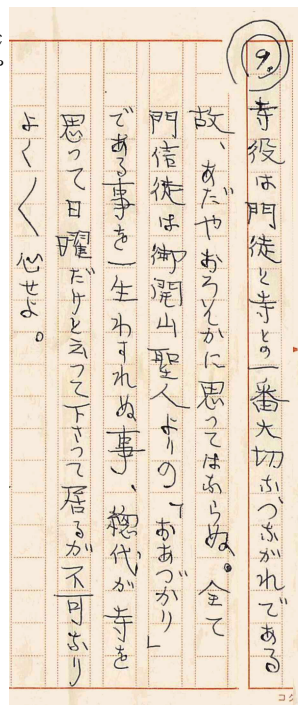 9. 寺役は門徒と寺との一番大切なつながれである
故、あだやおろそかに思ってはならぬ。全て
門信徒は御開山聖人よりの「おあづかり」
である事を一生わすれぬ事、総代が寺を
思って日曜だけと云って下さって居るが不可なり
よく〱心せよ。